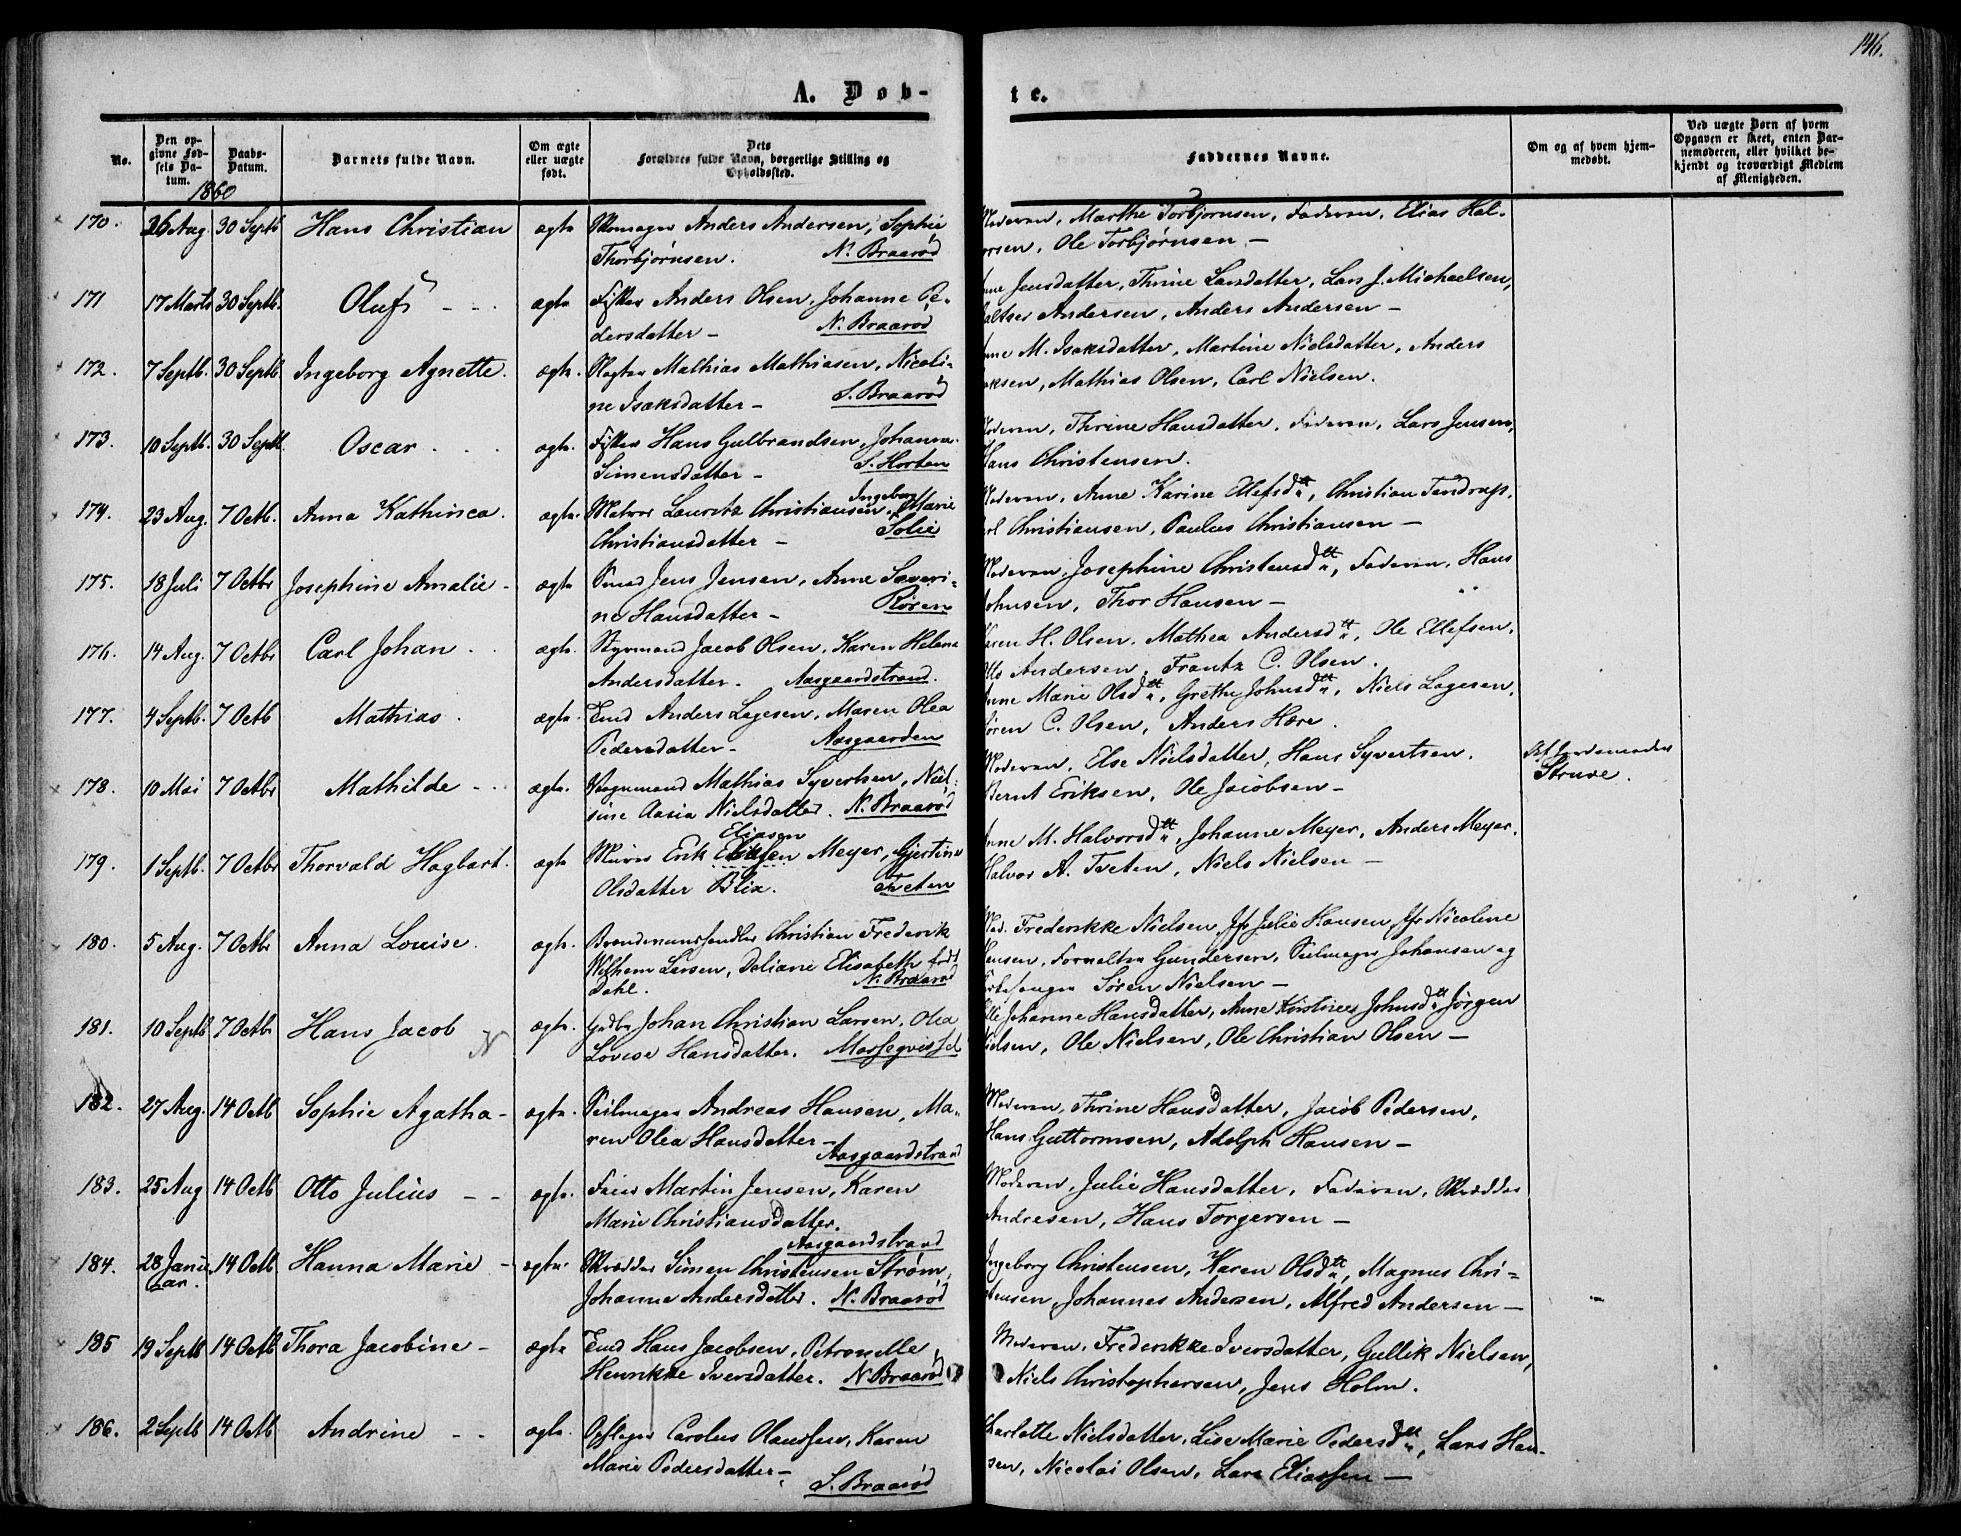 146.
A. Døb-
te.
No.
Den op-
givne Fød-
sels Da-
tum.
Daabs-
Datum.
Barnets fulde Navn.
Om ægte
eller uægte
født.
Dets
Forældres fulde Navn, borgerlige Stilling og
Opholdssted.
Faddernes Navne.
Om og af hvem hjem-
medøbt.
Ved uægte Børn af hvem
Opgaven er skeet, enten Bar-
nemoderen, eller hvilket be-
kjendt og troværdigt Medlem
af Menigheden.
1860
170. 26 Aug 30 Septb Hans Christian ægte Skomager Anders Andersen, Sophie
Thorbjørnsen. N. Braarød
Moderen, Marthe Torbjørnsen, Faderen, Elias Hal-
vorsen, Ole Torbjørnsen –
171 17 Marts 30 Septb. Oluf - - - ægte Fisker Anders Olsen, Johanne Pe-
dersdatter – N. Braarød
Anne Jensdatter, Thrine Larsdatter, Lars J. Michaelsen,
Baltser Andersen, Anders Andersen –
172. 7 Septb. 30 Septb Ingeborg Agnette. ægte. Slagter Mathias Mathiasen, Nicoli-
ne Isaksdatter – S. Braarød
Anne M. Isaksdatter, Martine Nielsdatter, Anders
Isaksen, Mathias Olsen, Carl Nielsen.
173. 10 Septb. 30 Septb. Oscar . . . ægte. Fisker Hans Gulbrandsen, Johanne
Simensdatter – S. Horten
Moderen, Thrine Hansdatter, Faderen, Lars Jensen,
Hans Christensen.
174. 23 Aug. 7 Octb. Anna Kathinca. ægte. Matros Lauritz Christiansen, Ingeborg Marie
Christiansdatter – Solie
Moderen, Anne Karine Ellefsdtt, Christian Tandrup,
Carl Christiansen, Paulus Christiansen –
175. 18 Juli 7 Octbr Josephine Amalie - ægte Smed Jens Jensen, Anne Severi-
ne Hansdatter – Røren
Moderen, Josephine Christensdtt, Faderen, Hans
Johnsen, Thor Hansen –
176. 14 Aug. 7 Octbr Carl Johan . . ægte. Styrmand Jacob Olsen, Karen Helene
Andersdatter. Aasgaardstrand.
Karen H. Olsen. Mathea Andersdtt, Ole Ellefsen,
Otto Andersen, Frantz C. Olsen.
177. 4 Septb. 7 Octb Mathias. ægte. Eind Anders Lagesen, Maren Olea
Pedersdatter – Aasgaarden
Anne Marie Olsdtt, Grethe Johnsdtt, Niels Lagesen,
Søren C. Olsen, Anders Hære.
178. 10 Mai 7 Octbr Mathilde - - ægte. Vognmand Mathias Syvertsen, Niel-
sine Aasia Nielsdatter. N. Braarød
Moderen, Else Nielsdatter, Hans Syvertsen.
Bernt Eriksen, Ole Jacobsen –
Af Jordemoder
Struve.
179. 1 Septb. 7 Octbr Thorvald Hagbart. ægte Murer Erik Eliasen Meyer, Gjertine
Olsdatter Blix. Tveten
Anne M. Halvorsdtt, Johanne Meyer, Anders Meyer,
Halvor A. Tveten, Niels Nielsen –
180. 5 Aug. 7 Octbr Anna Louise. ægte. Christian Frederik
Wilhelm Larsen, Deliane Elisabeth født
Dahl. N. Braarød
Mad. Frederikke Nielsen, Jfr Julie Hansen, Jfr Nicoline
Hansen, Forvalter Gundersen, Seilmager Johansen og
Kirkesanger Søren Nielsen –
181. 10 Septb 7 Octbr Hans Jacob ægte. Gadbr Johan Christian Larsen, Olea
Lovise Hansdatter.
Johanne Hansdatter, Anne Kirstine Johnsdtt, Jørgen
Nielsen, Ole Nielsen, Ole Christian Olsen –
182. 27 Aug. 14 Octb Sophie Agatha - ægte. Seilmager Andreas Hansen, Ma-
ren Olea Hansdatter – Aasgaardstrand
Moderen, Thrine Hansdatter, Jacob Pedersen,
Hans Guttormsen, Adolph Hansen –
183. 25 Aug 14 Octb Otto Julius - - ægte. Martin Jensen, Karen
Marie Christiansdatter.
Aasgaardstrand
Moderen, Julie Hansdatter, Faderen, Skrædder
Andresen, Hans Torgersen –
184. 28 Janu- 14 Octb. Hanna Marie - ægte. Skrædder Simen Christensen Strøm,
ar. Johanne Andersdatter. N. Braarød
Ingeborg Christensen, Karen Olsdtt, Magnus Chri-
stensen, Johannes Andersen, Alfred Andersen –
185 19 Septb 14 Octb Thora Jacobine - ægte Eind Hans Jacobsen, Petronelle
Henrikke Iversdatter. N. Braarød
Moderen, Frederikke Iversdatter, Gullik Nielsen,
Niels Christophersen, Jens Holm.
186. 2 Septb 14 Octb Andrine - - ægte. Opsynsm Carolus Olaussen, Karen
Marie Pedersdatter – S. Braarød
Charlotte Nielsdatter, Lise Marie Pedersdtt, Lars Han-
sen, Nicolai Olsen, Lars Eliassen –